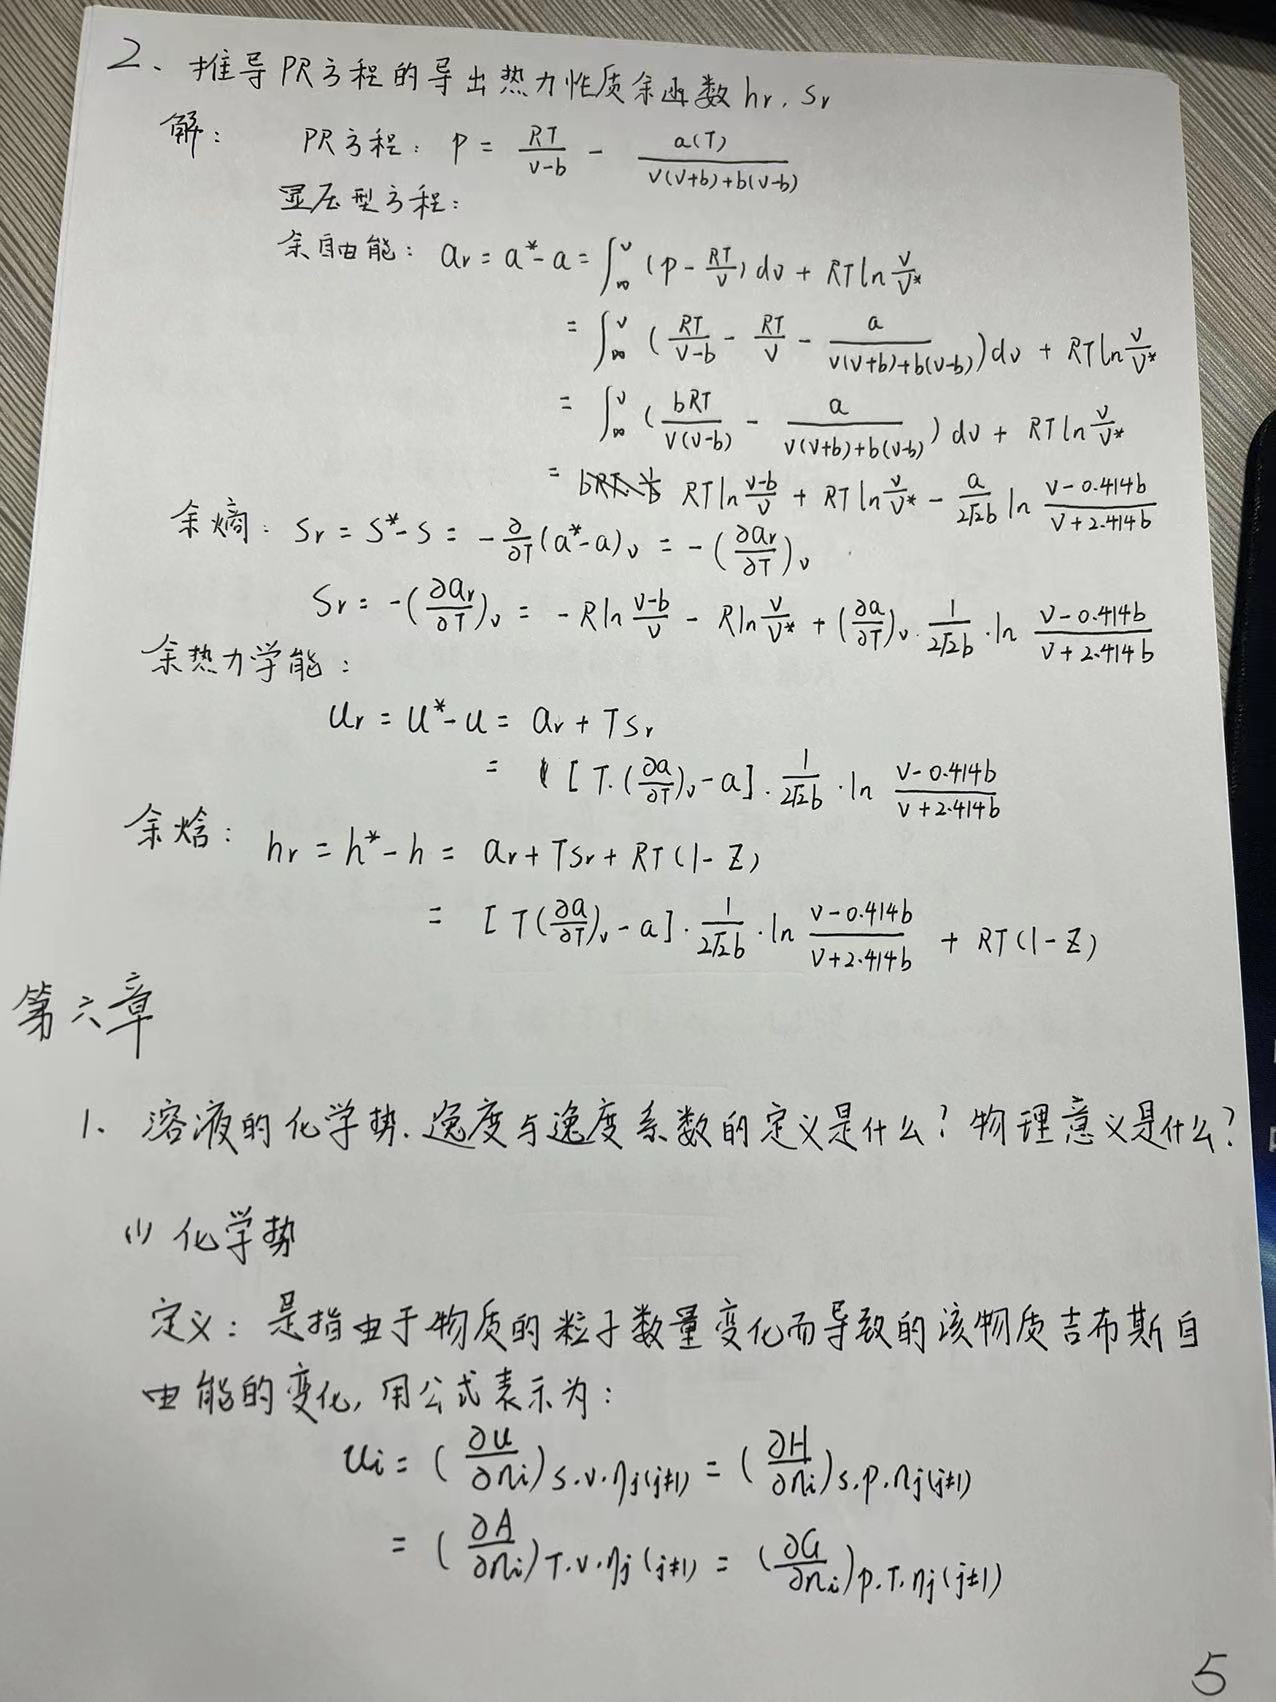 2、推导PR方程的导出热力性质余函数 hr, Sr
解: PR方程: P = RT/(v-b) - a(T)/(v(v+b)+b(v-b))
显压型方程:
余自由能: ar = a*-a = ∫_∞^v (p - RT/v) dv + RTln v/v*
= ∫_∞^v (RT/(v-b) - RT/v - a/(v(v+b)+b(v-b))) dv + RTln v/v*
= ∫_∞^v (bRT/(v(v-b)) - a/(v(v+b)+b(v-b))) dv + RTln v/v*
= RTln (v-b)/v + RTln v/v* - a/(2√2b) ln (v-0.414b)/(v+2.414b)
余熵: Sr = S*-S = -∂/∂T(a*-a)v = -(∂ar/∂T)v
Sr = -(∂ar/∂T)v = -Rln (v-b)/v - Rln v/v* + (∂a/∂T)v · 1/(2√2b) · ln (v-0.414b)/(v+2.414b)
余热力学能:
Ur = U*-u = ar + TSr
= [T·(∂a/∂T)v - a] · 1/(2√2b) · ln (v-0.414b)/(v+2.414b)
余焓: hr = h*-h = ar+TSr+RT(1-Z)
= [T(∂a/∂T)v - a] · 1/(2√2b) · ln (v-0.414b)/(v+2.414b) + RT(1-Z)
第六章
1、溶液的化学势、逸度与逸度系数的定义是什么?物理意义是什么?
(1) 化学势
定义: 是指由于物质的粒子数量变化而导致的该物质吉布斯自
由能的变化, 用公式表示为:
ui = (∂U/∂ni)s.v.nj(j≠1) = (∂H/∂ni)s.p.nj(j≠1)
= (∂A/∂ni)T.v.nj(j≠1) = (∂G/∂ni)p.T.nj(j≠1)
5